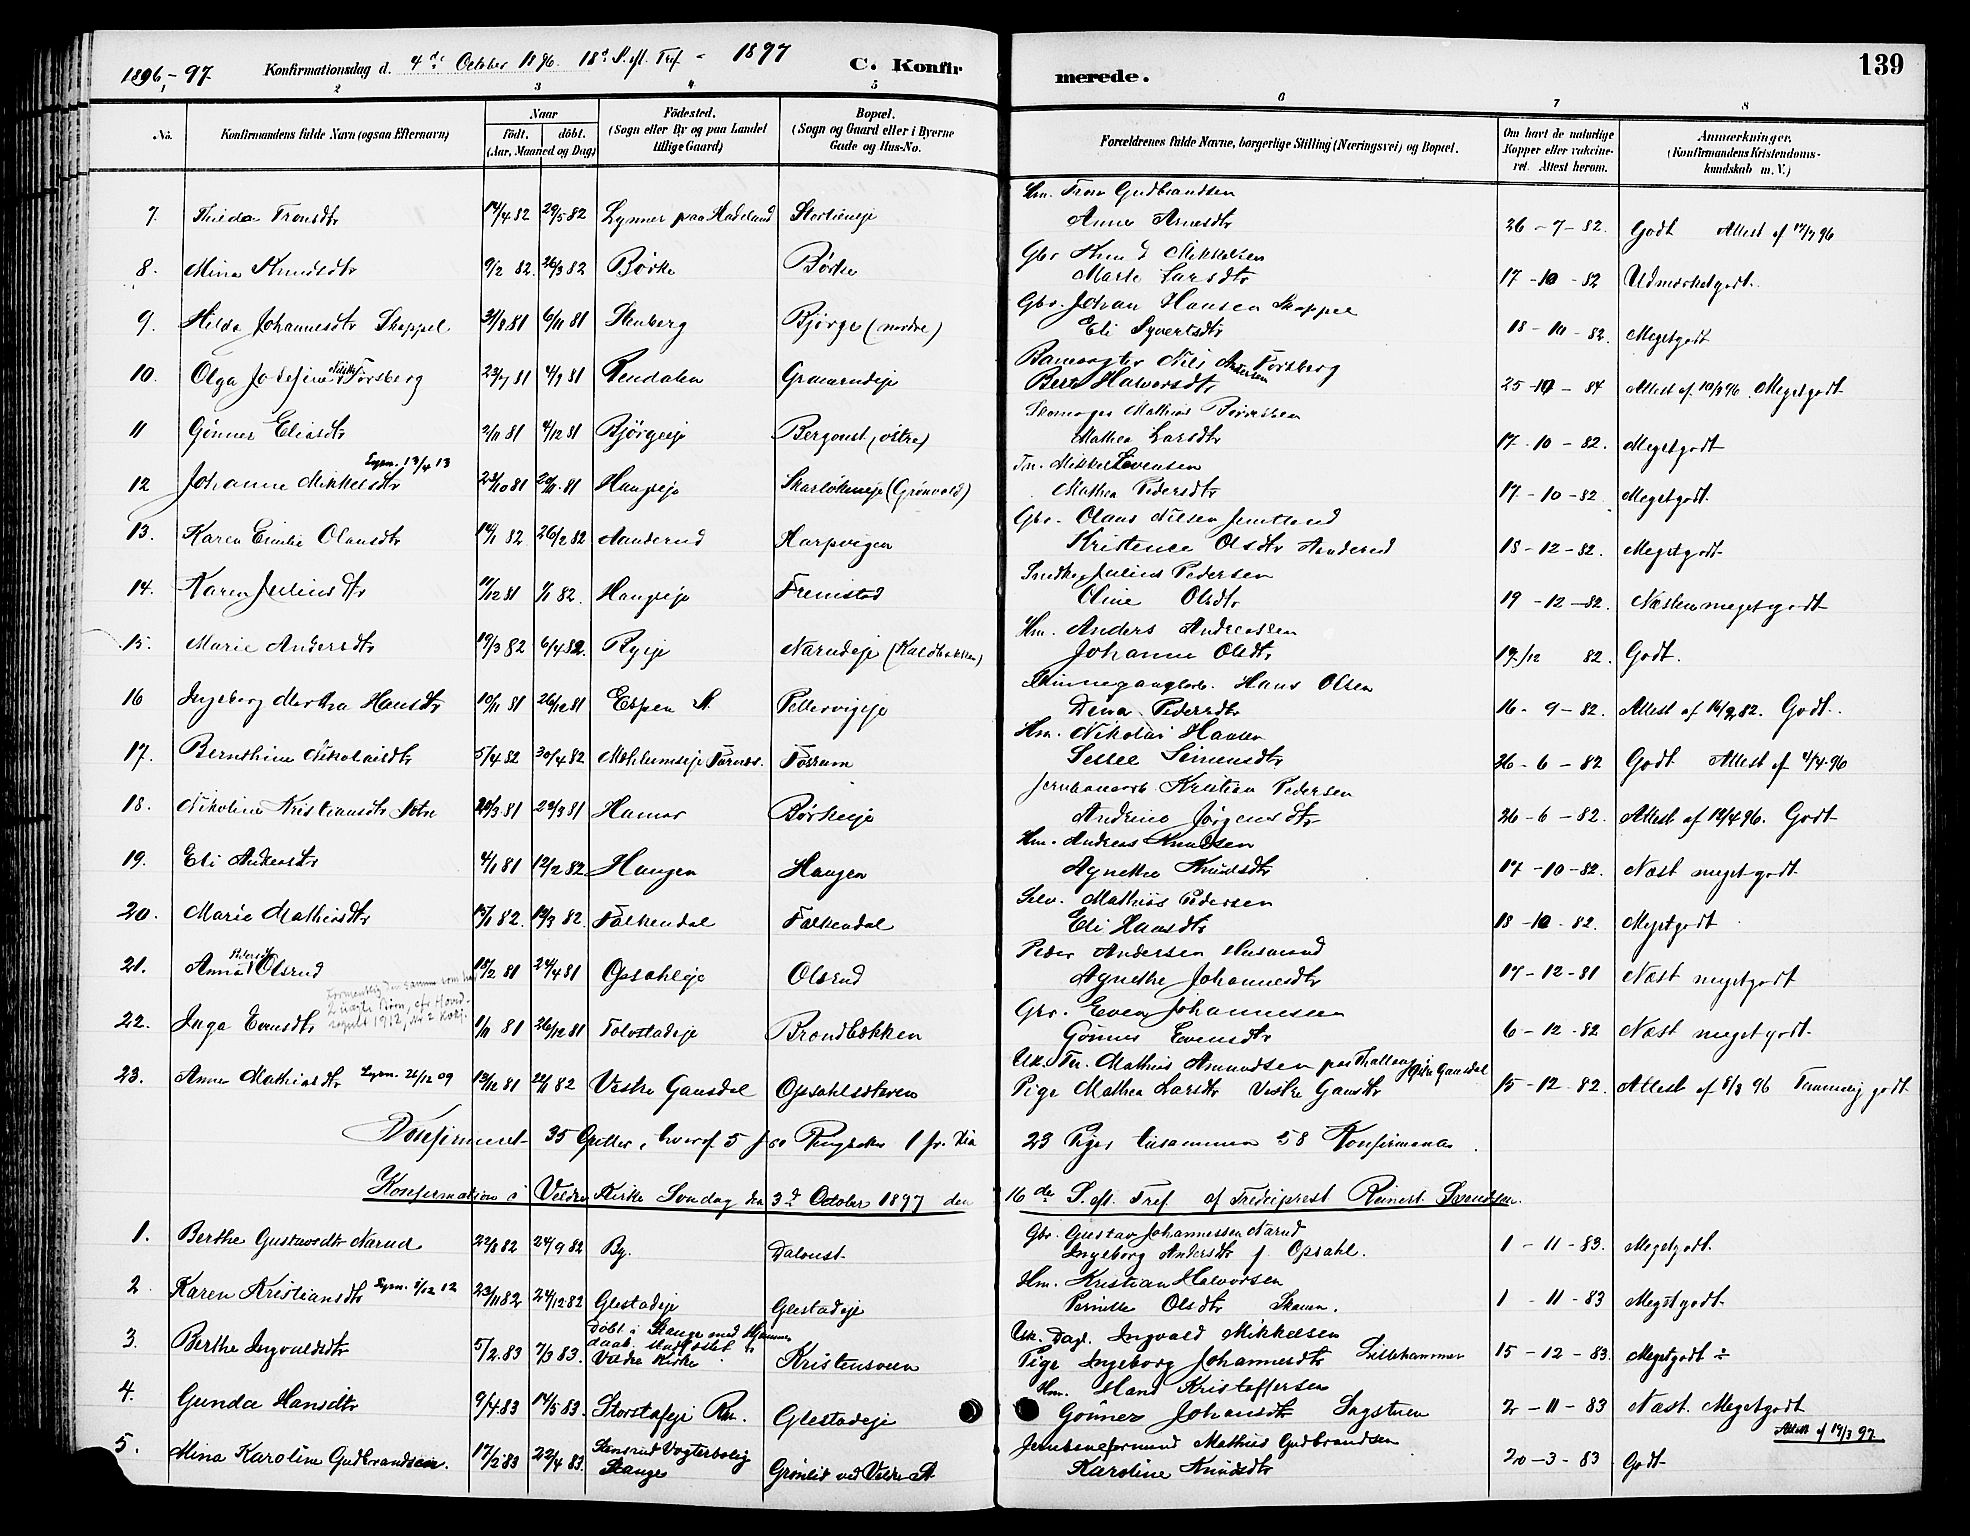 1896-97 Konfirmationsdag d. 4de October 1896. 18d S. eft. Tref - 1897 C. Konfirmerede. 139
2 3 4 5 6 7 8
No. Konfirmandens fulde Navn (ogsaa Efternavn) Naar født. døbt. (Aar, Maaned og Dag) Fødested. (Sogn eller By og paa Landet tillige Gaard) Bopæl. (Sogn og Gaard eller i Byerne Gade og Hus-No. Forældrenes fulde Navne, borgerlige Stilling (Næringsvei) og Bopæl. Om havt de naturlige Kopper eller vakcineret. Attest herom. Anmærkninger. (Konfirmandens Kristendomskundskab m. V.)
Hm. Tron Gudbrandsen
7. Thilda Tronsdtr 14/4 82 29/5 82 Lynner paa Hadeland Anne Arnesdtr 26-7-82. Godt Attest af 17/7 96
Gbr. Knud Mikkelsen
8. Mina Knudsdtr 9/2 82. 26/3 82 Børke Børke Marte Larsdtr 17-10-82 Udmærketgodt.
Gbr. Johan Hansen Skappel
9. Hilda Johannesdtr Skappel 31/8 81 6/11 81 Stenberg Bjørge (nordre) Eli Syvertsdtr 18-10-82. Megetgodt
Banevogter Nils Andersen Forsberg
10. Olga Josefine Forsberg 23/7 81 4/9 81 Rendalen Halvorsdtr 25-10-84 Attest af 10/9 96 Megetgodt
Skomager Mathias
11 Gønner Eliasdtr 2/11 81 4/12 81 Bjørgeeje Bergoust (østre) Mathea Larsdtr 17-10-82. Megetgodt
Lysn. 13/4 13 Tm. Mikkel Evensen
12 Johanne Mikkelsdtr 23/10 81 20/11 81 Haugeeje (Grønvold) Mathea Pedersdtr 17-10-82 Megetgodt.
Gbr. Olaus Nilsen Jemtland
13. Karen Emilie Olausdtr 14/1 82 26/2 82 Aanderud Harpvigen Kristence Olsdtr Aanderud 18-12-82. Megetgodt
Snedker Julius Pedersen
14. Karen Juliusdtr 11/12 81 1/1 82. Haugeeje Fremstad Oline Olsdtr 19-12-82. Næsten megetgodt
Hm. Anders Andreassen
15. Marie Andersdtr 19/3 82 6/4 82. Byeje Narudeje (Kaldbakken) Johanne Olsdtr 19/12 82. Godt.
Hans Olsen
16 Ingeborg Martha Hansdtr 10/11 81 26/12 81 Espen St. Pellervigeje Dina Pedersdtr 16-9-82. Attest af 16/9 82. Godt.
Hm. Nikolai Hansen
17. Bernthine Nikolaisdtr 5/4 82 30/4 82 Mæhlumseje Furnes. Fossum Simensdtr 26-6-82 Godt Attest af 4/4-96
Jernbanearb Kristian Pedersen
18. Nikoline Kristiansdtr 20/3 81 Hamar Børkeeje Andrine Jørgensdtr 26-6-82. Attest af 12/4 96. Godt
Hm. Andreas Knudsen
19. Eli Andreasdtr 4/1 81 12/2 82. Haugen Haugen Agnethe Knudsdtr 17-10-82. Næst megetgodt
Selv. Mathias Pedersen
20. Marie Mathiasdtr 15/1 82. 12/3 82 Falkendal Falkendal Eli Hansdtr 18-10-82. Megetgodt
Peder Andersen
21. Anna Pedersdtr Olsrud 18/2 81 24/4 81 Opsahleje Olsrud Agnethe Johannesdtr 17-12-81 Næst megetgodt
Formentlig den samme som har
Gbr. Even Johannessen
22. Inga Evensdtr 1/11 81 26/12 81 Tolvstadeje Brændbækken Gønner Evensdtr 6-12-82 Næst megetgodt.
Uk. Tm. Mathias Amundsen
23. Anne Mathiasdtr Lysn. 26/12 09 13/12 81 22/1 82 Vestre Gausdal Opsahlsækeren Pige Mathea Larsdtr Vestre Gausdal 15-12-82. Attest af 5/3 96 Temmelig godt
Konfirmeret 35 Gutter, hvoraf 5 fra Ringsaker 1 fr. 23 Piger tilsammen 58 Konfirmander.
Konfirmation i Veldre Kirke Søndag den 3d October 1897 den 16de S. eft. Tref. af Frediprest Reinert Svendsen.
Gbr. Gustav Johannessen Narud
1. Berthe Gustavsdtr Narud 22/8 82 24/9 82 By. Daloust. Ingeborg Andersdtr f Opsahl. 1-11-83. Megetgodt.
Hm. Kristian Halvorsen
2 Karen Kristiansdtr Lysn. 8/12 12 23/11 82 24/12 82 Glestadeje Glestadeje Pernille Olsdtr 1-11-83 Megetgodt.
Døbt i Stange med Hjemmedaab, stadfæstet Veldre Kirke Uk. Dagl. Ingvald Mikkelsen
3 Berthe Ingvaldsdtr 5/2 83 7/3 83. Kristensveen Pige Ingeborg Johannesdtr Lillehammer 15-12-83. Megetgodt ÷
Hm. Hans Kristoffersen
4. Gunda Hansdtr 9/4 83 14/5 83. Glestadeje Gønner Johansdtr 2-11-83 Næst. Megetgodt
Attest af 19/3 97
Jernbaneformand Mathias Gudbrandsen
5. Mina Karoline Gudbrandsen. 17/2 83 22/4 83 Vogterbolig Stange Grønlid ved Veldre St Karoline Knudsdtr 20-3-83 Godt